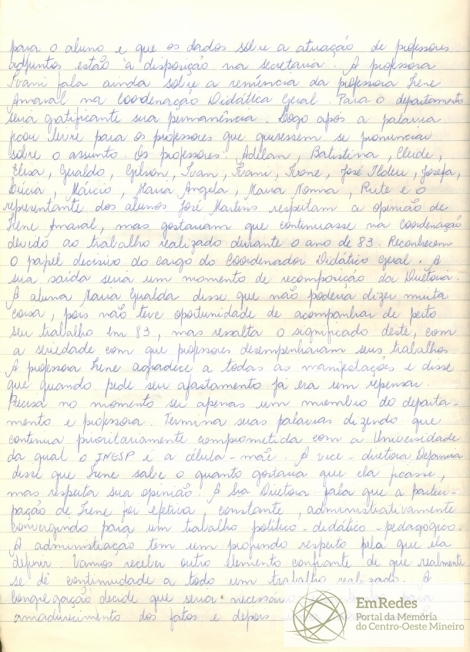 para o aluno e que os dados sobre a atuação de professores
adjuntos estão à disposição na secretaria. A professora
Ivani fala ainda sobre a renúncia da professora Irene
Amaral na Coordenação Didática Geral. Para o departamento
seria gratificante sua permanência. Logo após a palavra
ficou livre para os professores que quisessem se pronunciar
sobre o assunto. Os professores: Adilan, Batistina, Cleide,
Elisa, Geraldo, Gilson, Ivan, Ivani, Ivone, José Ildeu, Josefa,
Márcio, Maria Ângela, Maria Norma, Rute e o
representante dos alunos José Martins respeitam a opinião de
Irene Amaral, mas gostariam que continuasse na Coordenação
devido ao trabalho realizado durante o ano de 83. Reconhecem
o papel decisivo do cargo do Coordenador Didático Geral. A
sua saída seria um momento de recomposição da Diretoria.
A aluna Maria Geralda disse que não poderia dizer muita
coisa, pois não teve oportunidade de acompanhar de perto
seu trabalho em 83, mas ressalta o significado deste, com
a seriedade com que professores desempenharam seus trabalhos.
A professora Irene agradece a todas as manifestações e disse
que quando pede seu afastamento já era um repensar.
Precisa no momento ser apenas um membro do departa-
mento e professora. Termina suas palavras dizendo que
continua prioritariamente comprometida com a Universidade
da qual o INESP é a célula-mãe. A vice-diretora
disse que Irene sabe o quanto gostaria que ela ficasse,
mas respeita sua opinião. A Sra Diretora fala que a partici-
pação de Irene foi efetiva, constante, administrativamente
convergindo para um trabalho político-didático-pedagógico.
A administração tem um profundo respeito pelo que ela
definir. Vamos receber outro elemento confiante de que realmente
se dê continuidade a todo um trabalho realizado. A
Congregação decide que seria necessário
amadurecimento dos fatos e depois
EmRedes
Portal da Memória
do Centro-Oeste Mineiro